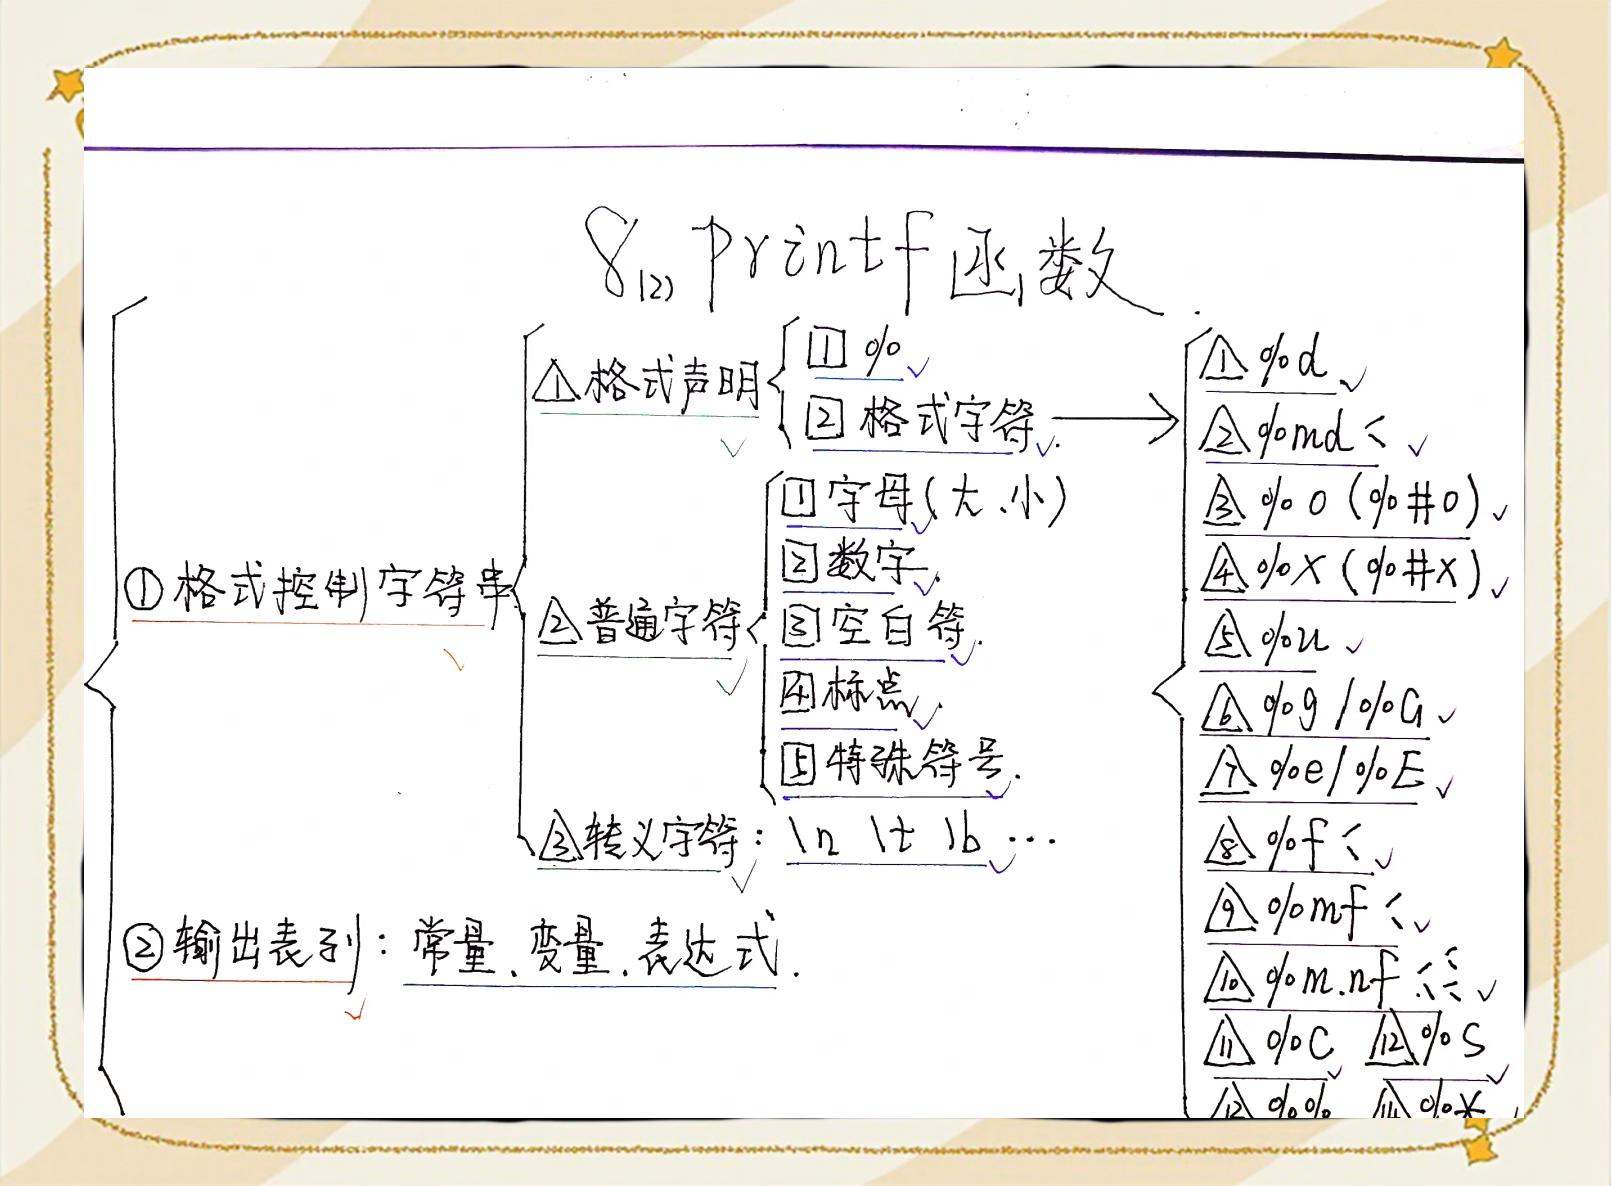 8(2) printf函数.
① 格式控制字符串
△1 格式声明
[1] %
[2] 格式字符.
△2 普通字符
[1] 字母(大、小)
[2] 数字.
[3] 空白符.
[4] 标点.
[5] 特殊符号.
△3 转义字符: \n \t \b …
② 输出表列: 常量、变量、表达式.
△1 %d
△2 %md <
△3 %o (%#o)
△4 %x (%#x)
△5 %u
△6 %g/%G
△7 %e/%E
△8 %f <
△9 %mf <
△10 %m.nf
△11 %c △12 %s
%% %*